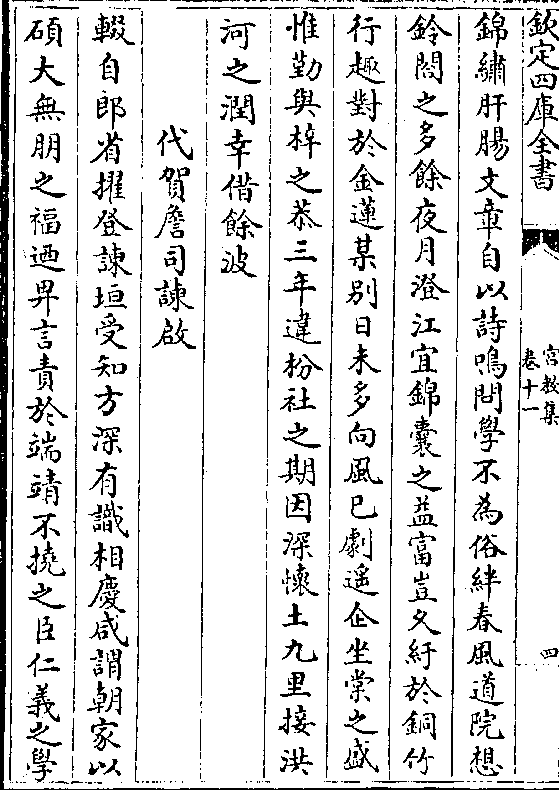 欽定四庫全書
宮教集
卷十一
四
錦繡肝腸文章自以詩鳴問學不為俗絆春風道院想
鈴閤之多餘夜月澄江宜錦囊之益富豈久紆於銅竹
行趣對於金蓮某别日未多向風已劇遥企坐棠之盛
惟勤與梓之恭三年違枌社之期因深懷土九里接洪
河之潤幸借餘波
代賀詹司諫啟
輟自郎省擢登諫垣受知方深有識相慶咸謂朝家以
碩大無朋之福迺畀言責於端靖不撓之臣仁義之學